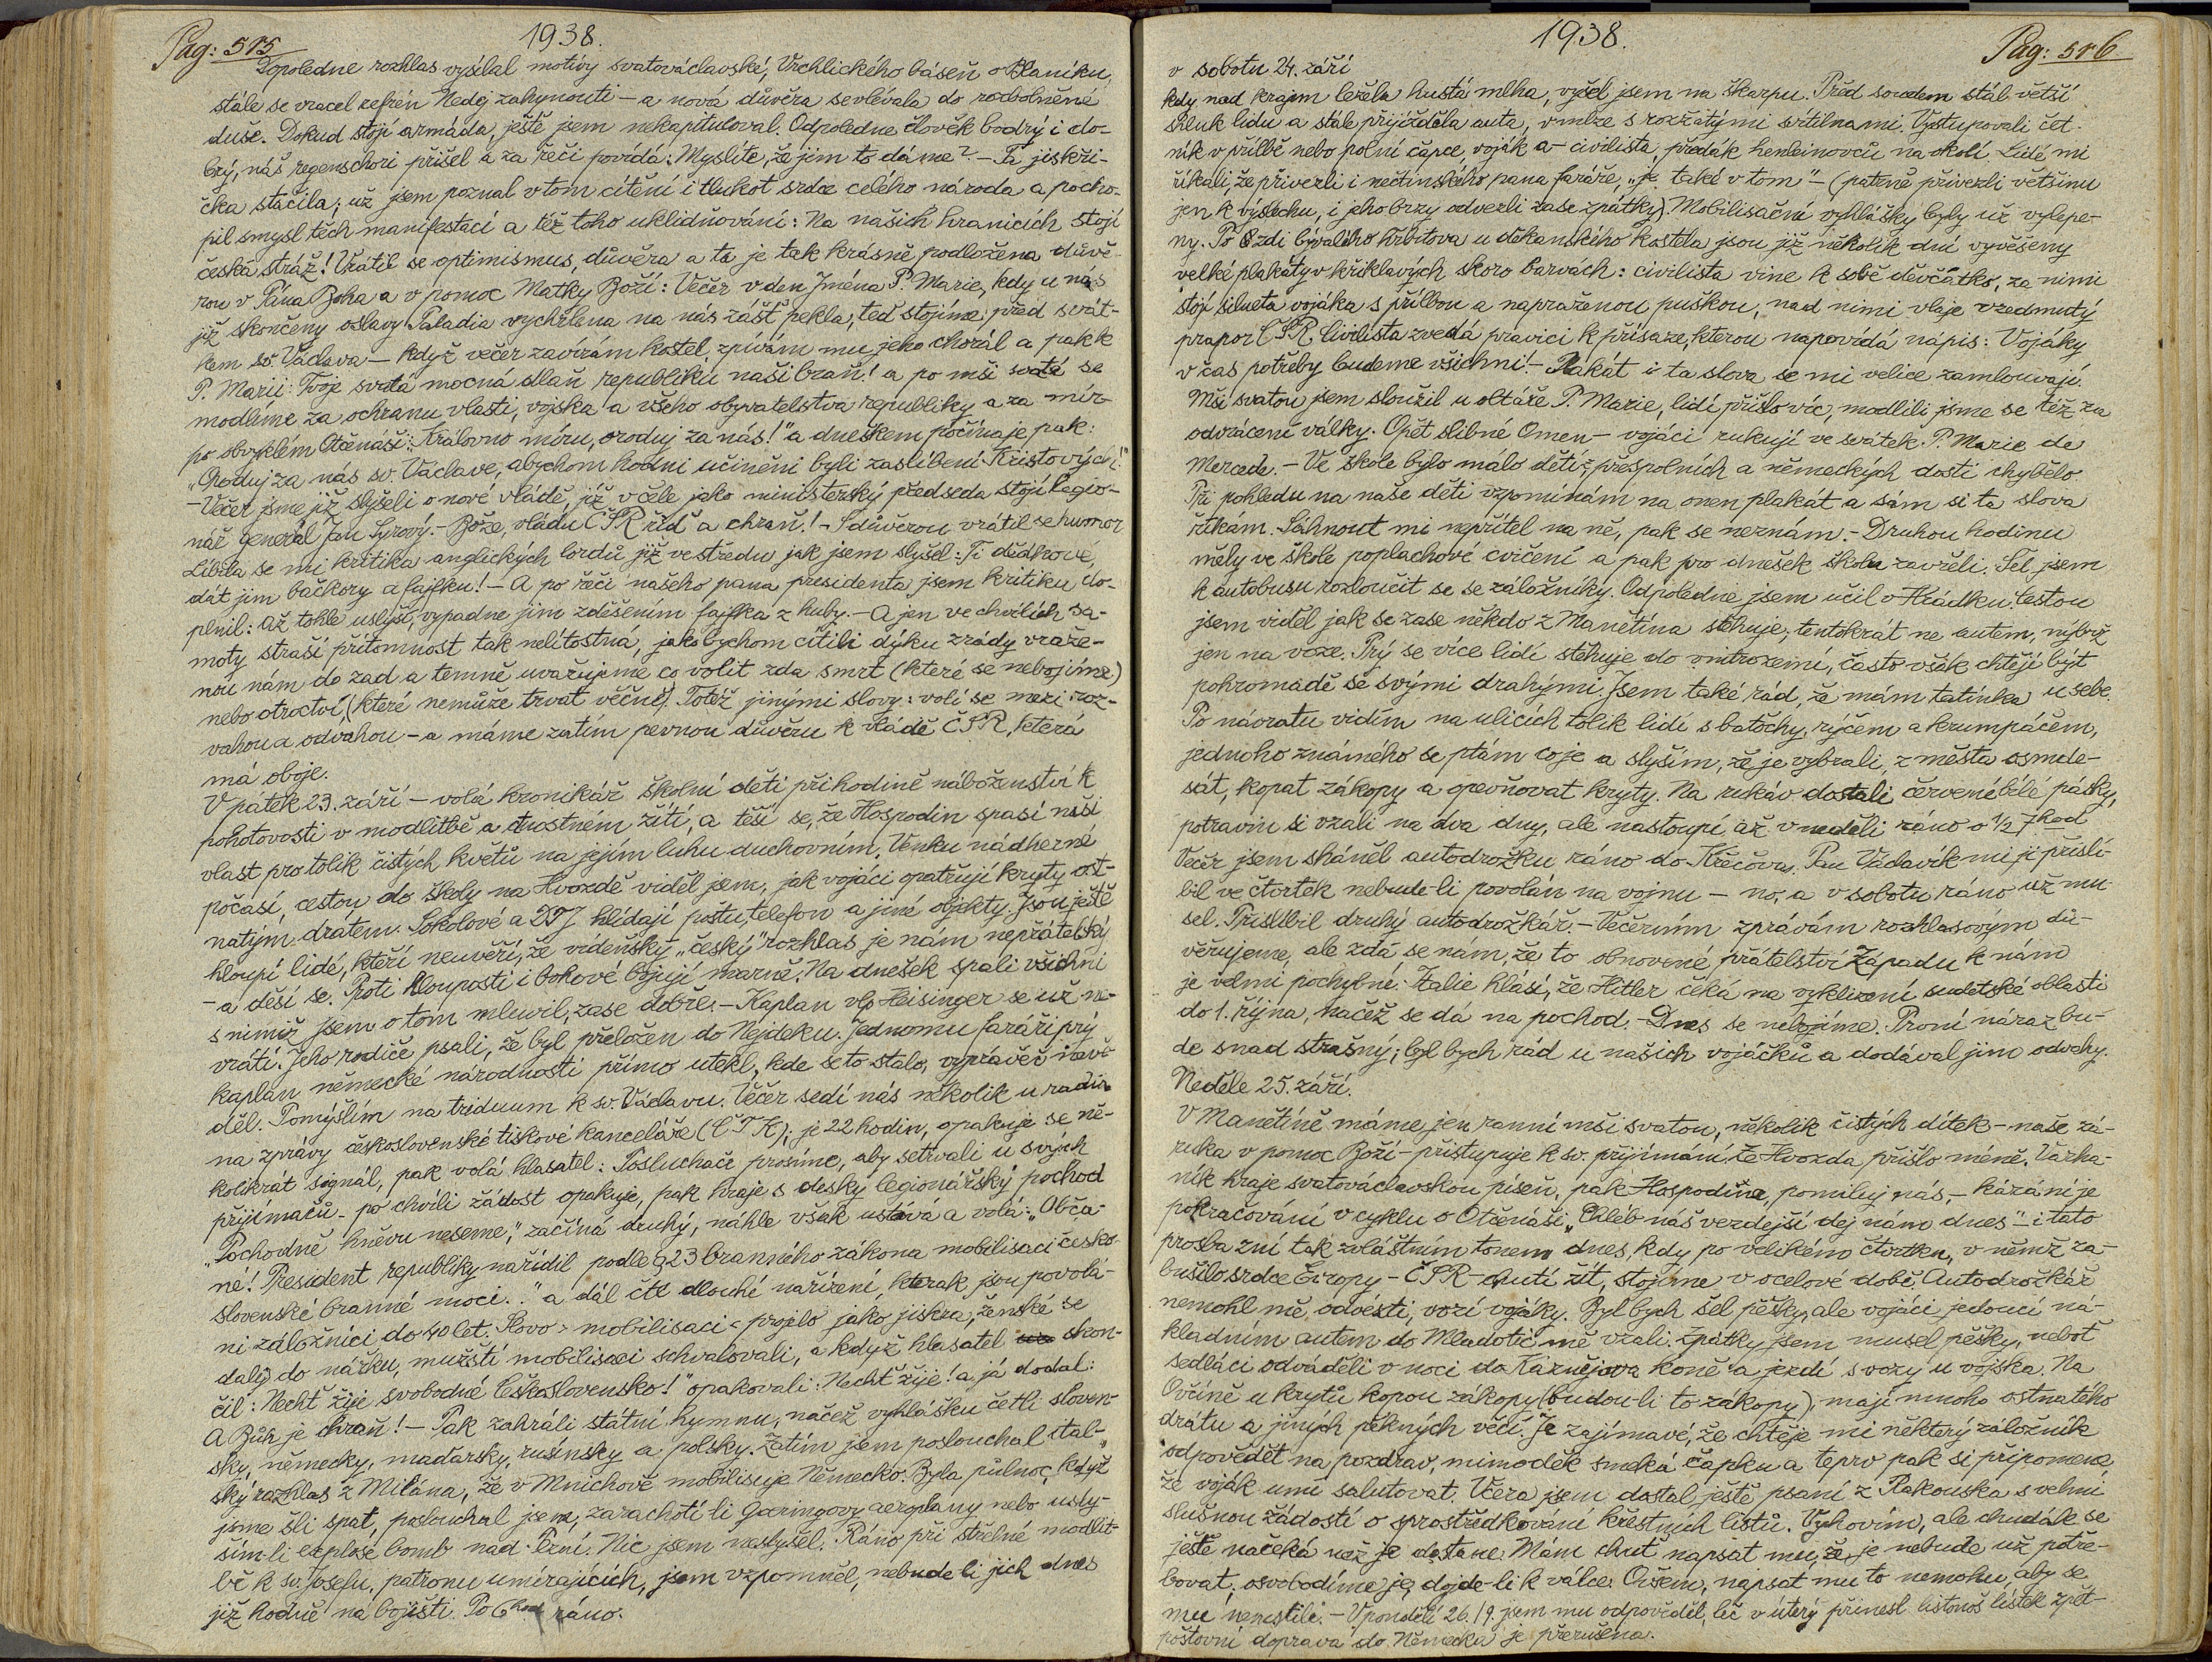 Pag: 515
1938.
Dopoledne rozhlas vysílal motivy svatováclavské, Vrchlického báseň o Blaníku,
stále se vracel refrén Nedej zahynouti – a nová důvěra se vlévala do rozbolněné
duše. Dokud stojí armáda, ještě jsem nekapituloval. Odpoledne člověk bodrý i do-
brý, náš regenschori přišel a za řeči povídá: Myslíte, že jim to dáme? – Ta jiskři-
čka stačila; už jsem poznal v tom cítění i tlukot srdce celého národa a pocho-
pil smysl těch manifestací a též toho uklidňování: Na našich hranicích stojí
česká stráž! Vrátil se optimismus, důvěra a ta je tak krásně podložena důvě-
rou v Pána Boha a v pomoc Matky Boží: Večer v den Jména P. Marie, kdy u nás
již skončeny oslavy Paladia vychrlena na nás zášť pekla, teď stojíme před svát-
kem sv. Václava – když večer zavírám kostel, zpívám mu jeho chorál a pak k
P. Marii: Tvoje svatá mocná dlaň republiku naši braň! a po mši svaté se
modlíme za ochranu vlasti, vojska a všeho obyvatelstva republiky a za mír
po obvyklém Otčenáši: „Královno míru, oroduj za nás!" a dneškem počínaje pak:
„Oroduj za nás sv. Václave, abychom hodni učiněni byli zaslíbení Kristových!"
– Večer jsme již slyšeli o nové vládě, jíž v čele jako ministerský předseda stojí legio-
nář generál Jan Syrový. – Bože, vládu ČSR řiď a chraň! – S důvěrou vrátil se humor
Líbila se mi kritika anglických lordů již ve středu jak jsem slyšel: Ti dědkové,
dát jim bačkory a fajfku! – A po řeči našeho pana presidenta jsem kritiku do-
plnil: Až tohle uslyší, vypadne jim zděšením fajfka z huby. – A jen ve chvílích sa-
moty straší přítomnost tak nelítostná, jako bychom cítili dýku zrády vraže-
nou nám do zad a temně uvažujeme co volit zda smrt (které se nebojíme)
nebo otroctví, (které nemůže trvat věčně). Totéž jinými slovy: volí se mezi roz-
vahou a odvahou – a máme zatím pevnou důvěru k vládě ČSR, která
má oboje.
V pátek 23. září – volá kronikář školní děti při hodině náboženství k
pohotovosti v modlitbě a ctnostném žití, a těší se, že Hospodin spasí naši
vlast pro tolik čistých květů na jejím luhu duchovním. Venku nádherné
počasí, cestou do školy na Hvozdě viděl jsem, jak vojáci opatřují kryty ost-
natým drátem. Sokolové a DTJ hlídají poštu, telefon a jiné objekty. Jsou ještě
hloupí lidé, kteří neuvěří, že vídeňský „český" rozhlas je nám nepřátelský
– a děsí se. Proti hlouposti i bohové bojují marně. Na dnešek spali všichni
s nimiž jsem o tom mluvil, zase dobře. – Kaplan vlp. Heisinger se už ne-
vrátí. Jeho rodiče psali, že byl přeložen do Nejdeku. Jednomu faráři prý
kaplan německé národnosti přímo utekl, kde se to stalo, vypravěč nevě-
děl. Pomýšlím na triduum k sv. Václavu. Večer sedí nás několik u radia
na zprávy československé tiskové kanceláře (ČTK); je 22 hodin, opakuje se ně-
kolikrát signál, pak volá hlasatel: Posluchače prosíme, aby setrvali u svých
přijimačů – po chvíli žádost opakuje, pak hraje s desky legionářský pochod
„Pochodně hněvu neseme", začíná druhý, náhle však ustává a volá: „Obča-
né! President republiky nařídil podle § 23 branného zákona mobilisaci česko-
slovenské branné moci.." a dál čte dlouhé nařízení, kterak jsou povolá-
ni záložníci do 40 let. Slovo > mobilisaci < projelo jako jiskra, ženské se
daly do nářku, mužští mobilisaci schvalovali, a když hlasatel skon-
čil: Nechť žije svobodné Československo!" opakovali: Nechť žije! a já dodal:
A Bůh je chraň! – Pak zahráli státní hymnu, načež vyhlášku četli sloven-
sky, německy, maďarsky, rusínsky a polsky. Zatím jsem poslouchal ital-
ský rozhlas z Milána, že v Mnichově mobilisuje Německo. Byla půlnoc, když
jsme šli spat, poslouchal jsem, zarachotí-li Goeringovy aeroplany nebo usly-
ším-li explosi bomb nad Plzní. Nic jsem neslyšel. Ráno při střelné modlit-
bě k sv. Josefu, patronu umírajících, jsem vzpomněl, nebude-li jich dnes
již hodně na bojišti. Po 6 hod ráno.
1938.
Pag: 516
v sobotu 24. září
kdy nad krajem ležela hustá mlha, vyšel jsem na škarpu. Před soudem stál větší
shluk lidu a stále přijížděla auta, v mlze s rozžatými svítilnami. Vystupovali čet-
ník v přilbě nebo polní čapce, voják a – civilista, předák henleinovců na okolí. Lidé mi
říkali, že přivezli i nečtinského pana faráře, „je také v tom" – (patrně přivezli většinu
jen k výslechu, i jeho brzy odvezli zase zpátky). Mobilisační vyhlášky byly už vylepe-
ny. Po zdi bývalého hřbitova u děkanského kostela jsou již několik dní vyvěšeny
velké plakáty v křiklavých skoro barvách: civilista vine k sobě děvčátko, za nimi
stojí silueta vojáka s přilbou a napraženou puškou, nad nimi vlaje vzedmutý
prapor ČSR. Civilista zvedá pravici k přísaze, kterou napovídá nápis: Vojáky
v čas potřeby budeme všichni! – Plakát i ta slova se mi velice zamlouvají.
Mši svatou jsem sloužil u oltáře P. Marie, lidí přišlo víc, modlili jsme se též za
odvrácení války. Opět slibné Omen – vojáci rukují ve svátek P. Marie de
Mercede. – Ve škole bylo málo dětí z přespolních a německých dosti chybělo.
Při pohledu na naše děti vzpomínám na onen plakát a sám si ta slova
říkám. Sáhnout mi nepřítel na ně, pak se neznám. – Druhou hodinu
měly ve škole poplachové cvičení a pak pro dnešek školu zavřeli. Šel jsem
k autobusu rozloučit se se záložníky. Odpoledne jsem učil v Hrádku. Cestou
jsem viděl jak se zase někdo z Manětína stěhuje, tentokrát ne autem, nýbrž
jen na voze. Prý se více lidí stěhuje do vnitrozemí, často však chtějí být
pohromadě se svými drahými. Jsem také rád, že mám tatínka u sebe.
Po návratu vidím na ulicích tolik lidí s batohy, rýčem a krumpáčem,
jednoho známého se ptám co je a slyším, že je vybrali z města osmde-
sát, kopat zákopy a opevňovat kryty. Na rukáv dostali červenébílé pásky,
potravin si vzali na dva dny, ale nastoupí až v neděli ráno o ½ 7 hod
Večer jsem sháněl autodrožku ráno do Křečova. Pan Václavík mi ji přislí-
bil ve čtvrtek nebude-li povolán na vojnu – no, a v sobotu ráno už mu-
sel. Přislíbil druhý autodrožkář. – Večerním zprávám rozhlasovým dů-
věřujeme, ale zdá se nám, že to obnovené přátelství Západu k nám
je velmi pochybné. Italie hlásí, že Hitler čeká na vyklizení sudetské oblasti
do 1. října, načež se dá na pochod. – Dnes se nebojíme. První náraz bu-
de snad strašný; byl bych rád u našich vojáčků a dodával jim odvahy.
Neděle 25. září.
V Manětíně máme jen ranní mši svatou, několik čistých dítek – naše zá-
ruka v pomoc Boží – přistupuje k sv. přijímání. Ze Hvozda přišlo méně. Varha-
ník hraje svatováclavskou píseň, pak Hospodine, pomiluj nás, – kázání je
pokračování v cyklu o Otčenáši „Chléb náš vezdejší dej nám dnes" – i tato
prosba zní tak zvláštním tonem dnes, kdy po velikém čtvrtku, v němž za-
bušilo srdce Evropy – ČSR – chutí žít, stojíme v ocelové době. Autodrožkář
nemohl mě odvésti, vozí vojáky. Byl bych šel pěšky, ale vojáci jedoucí ná-
kladním autem do Mladotic mě vzali. Zpátky jsem musel pěšky, neboť
sedláci odváděli v noci do Kaznějova koně a jezdí s vozy u vojska. Na
Ovčíně u krytů kopou zákopy (budou-li to zákopy); mají mnoho ostnatého
drátu a jiných pěkných věcí. Je zajímavé, že chtěje mi některý záložník
odpovědět na pozdrav, mimoděk smeká čapku a teprv pak si připomene
že voják umí salutovat. Včera jsem dostal ještě psaní z Rakouska s velmi
slušnou žádostí o sprostředkování křestních listů. Vyhovím, ale chudák se
ještě načeká než je dostane. Mám chuť napsat mu, že je nebude už potře-
bovat, osvobodíme jej, dojde-li k válce. Ovšem, napsat mu to nemohu, aby se
mu nemstili. – V pondělí 26./9. jsem mu odpověděl, leč v úterý přinesl listonoš lístek zpět –
poštovní doprava do Německa je přerušena.